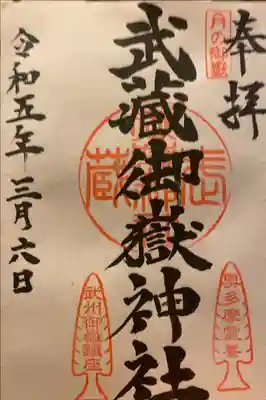 奉拝
月の御嶽
武蔵御嶽神社
令和五年三月六日
奥多摩霊峯
武州御嶽鎮座